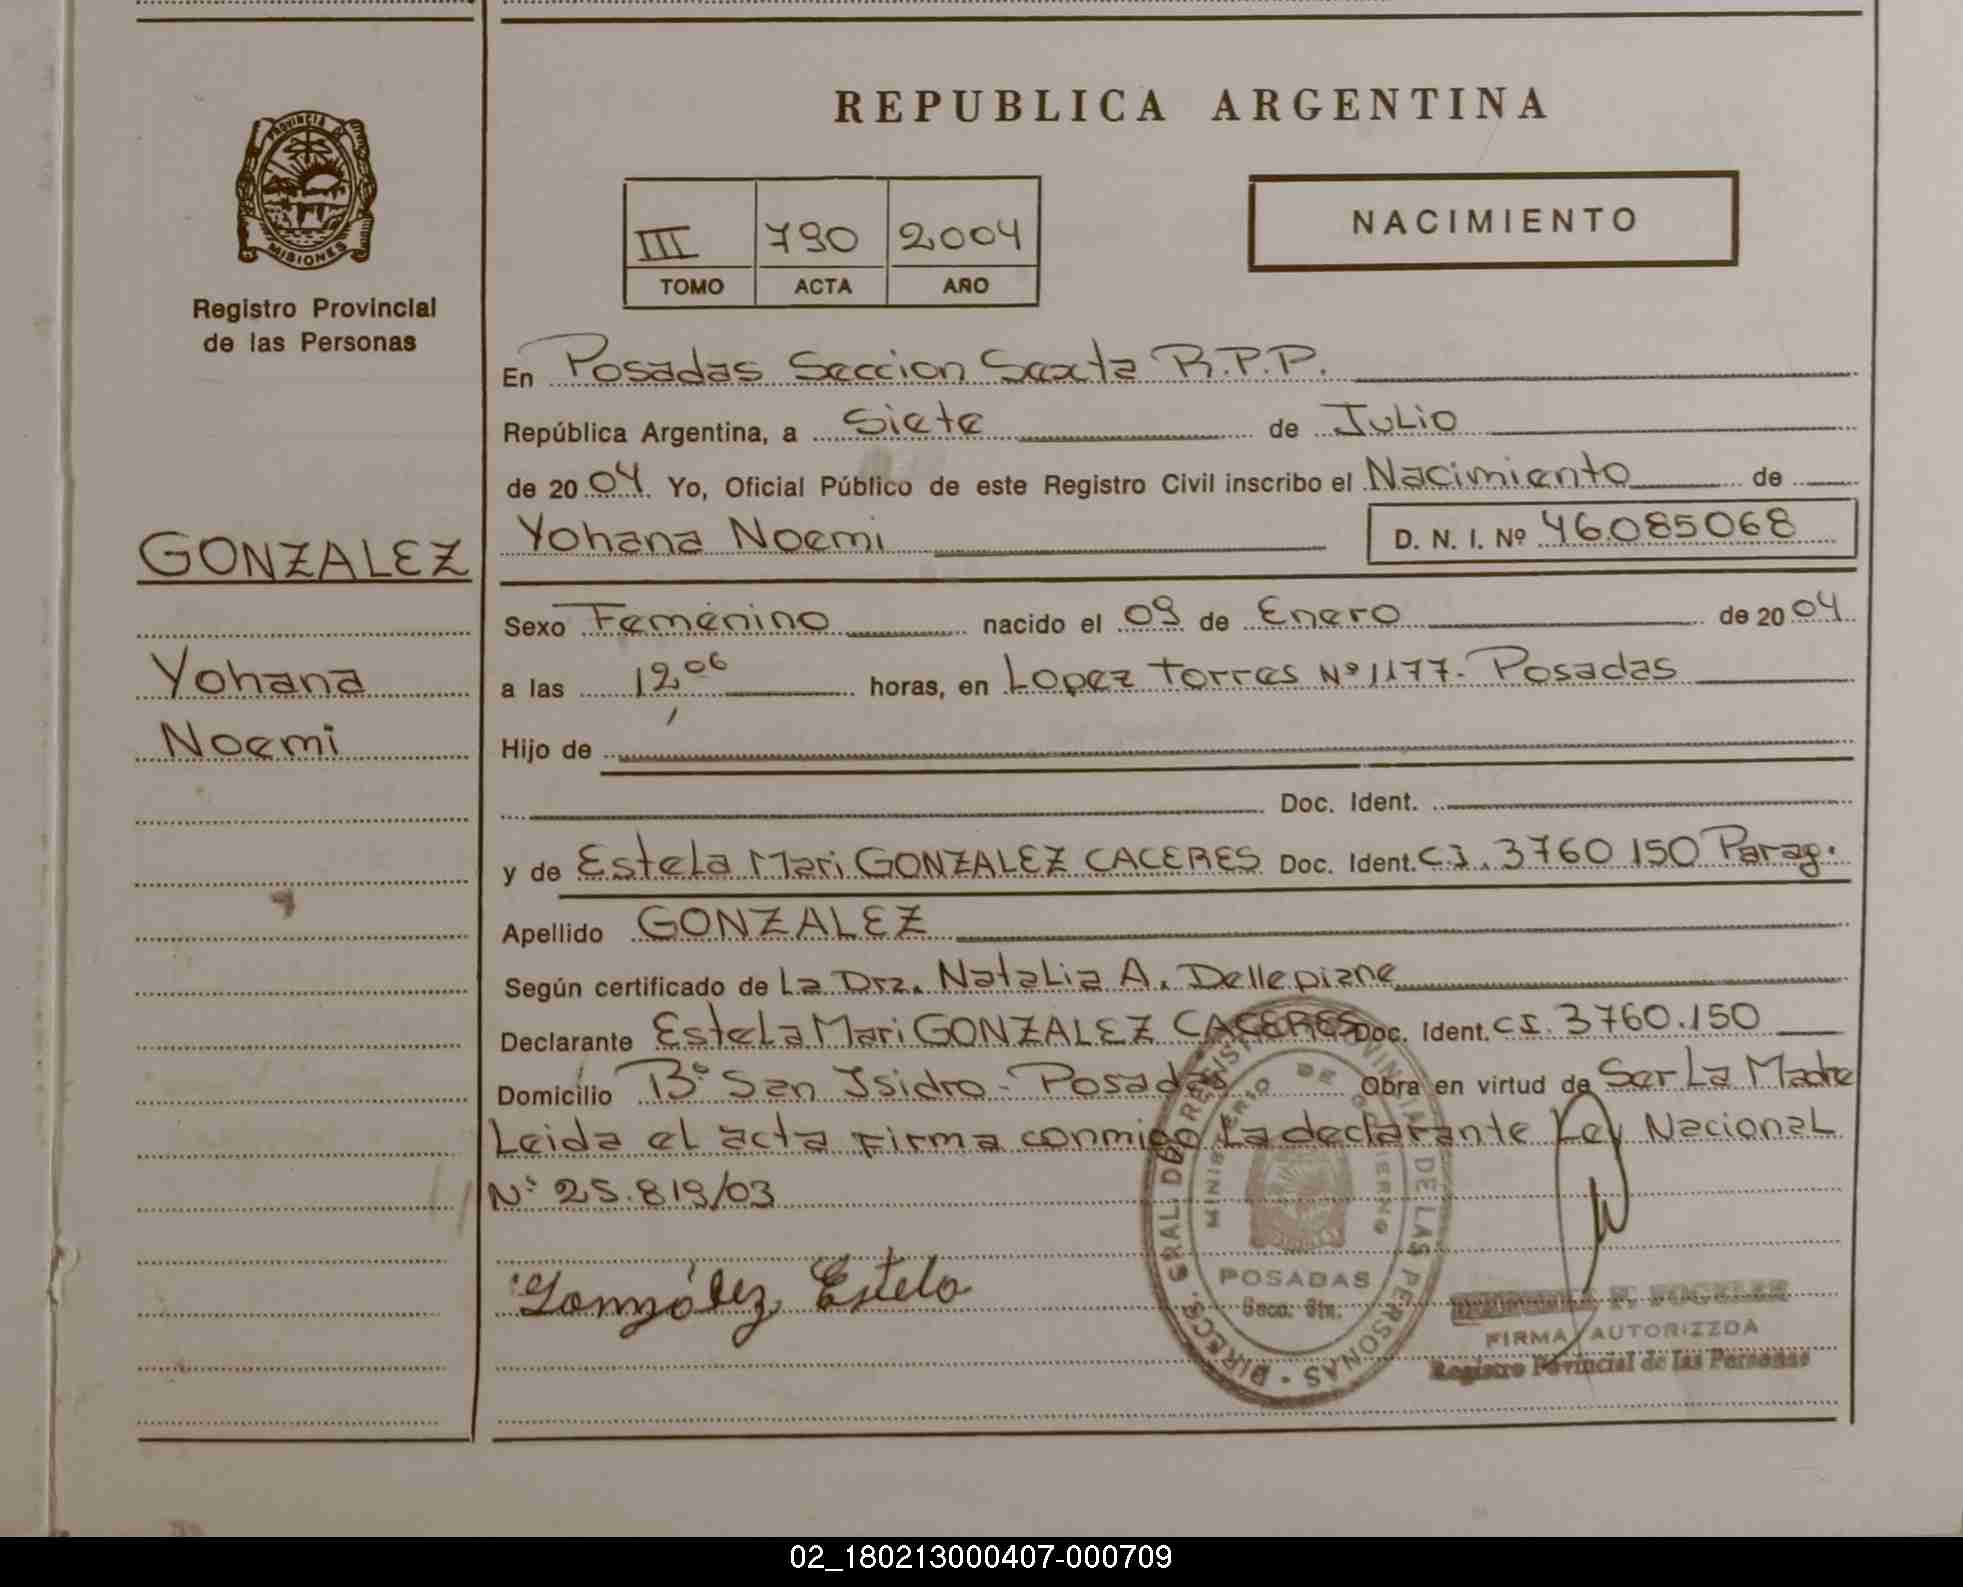 REPUBLICA ARGENTINA
PROVINCIA DE MISIONES
Registro Provincial
de las Personas
III 790 2004
TOMO ACTA AÑO
NACIMIENTO
En Posadas Seccion Sexta R.P.P.
República Argentina, a Siete de Julio
de 2004 Yo, Oficial Público de este Registro Civil inscribo el Nacimiento de
GONZALEZ
Yohana
Noemi
Yohana Noemi D. N. I. Nº 46.085068
Sexo Femenino nacido el 09 de Enero de 2004
a las 12,06 horas, en Lopez Torres Nº 1177- Posadas
Hijo de
Doc. Ident.
y de Estela Mari GONZALEZ CACERES Doc. Ident. CI. 3760 150 Parag.
Apellido GONZALEZ
Según certificado de La Dra. Natalia A. Dellepiane
Declarante Estela Mari GONZALEZ CACERES Doc. Ident. CI. 3760.150
Domicilio Bº San Isidro - Posadas Obra en virtud de Ser La Madre
Leida el acta firma conmigo La declarante Ley Nacional
Nº 25.819/03
Gonzólez Estela
DIRECC. GRAL. DEL REGISTRO PROVINCIAL DE LAS PERSONAS
MINISTERIO DE GOBIERNO
POSADAS
Secc. 6ta.
FIRMA AUTORIZZDA
Registro Povincial de las Personas
02_180213000407-000709